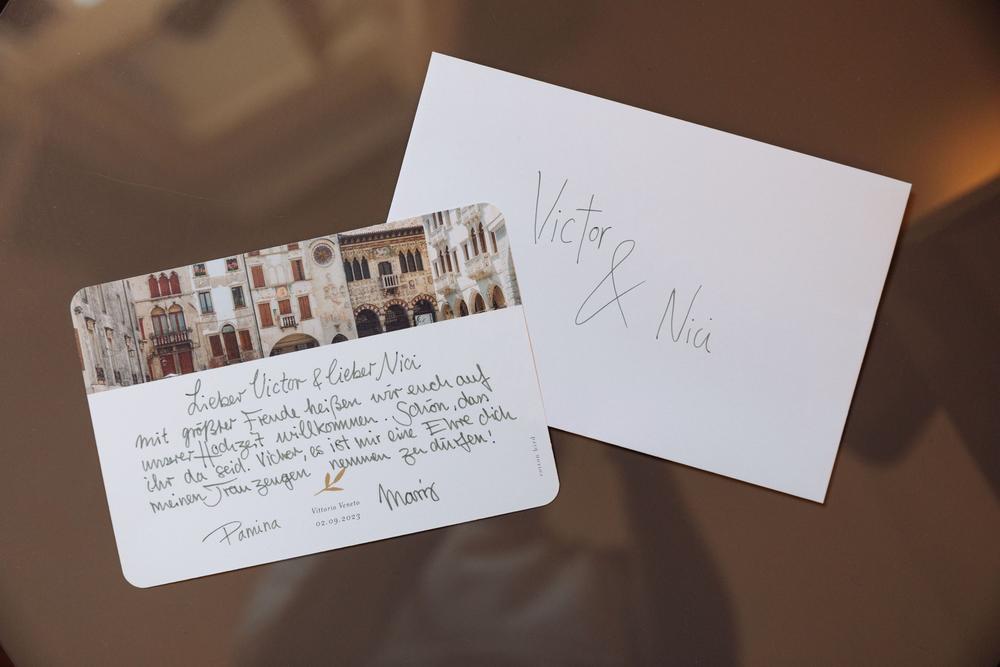 Lieber Victor & lieber Nici
mit größter Freude heißen wir euch auf
unserer Hochzeit willkommen. Schön, dass
ihr da seid. Victor, es ist mir eine Ehre dich
meinen Trauzeugen nennen zu dürfen!
Pamina
Vittorio Veneto
02.09.2023
Maris
cotton bird
Victor
&
Nici